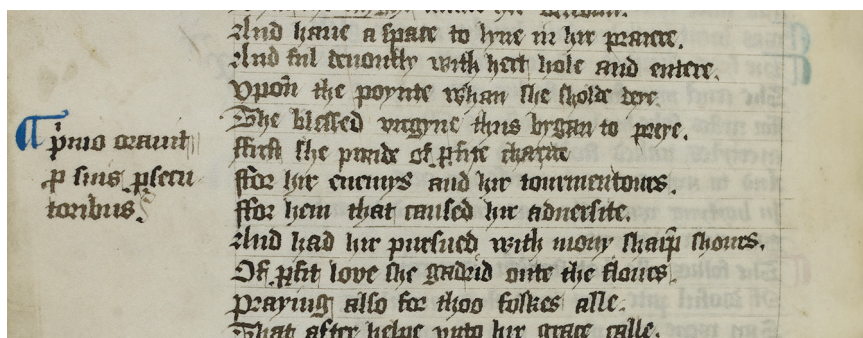 And haue a space to lyue in hir praiere.
And ful deuoutly with hert hole and entere.
Vpon the poynte whan she sholde deye
The blessed virgyne thus bygan to preye.
ffirst she praide of ꝑfite charite
ffor hir enemys and hir tourmentoures.
ffor hem that caused hir aduersite.
And had hir pursued with mony sharp̄ shoures.
Of ꝑfit love she gadrid oute the floures.
Praying also for thoo folkes alle.
That after helpe vnto hir grace calle.
¶ p͛mo orauit
ꝑ suis ꝑsecu
toribus.